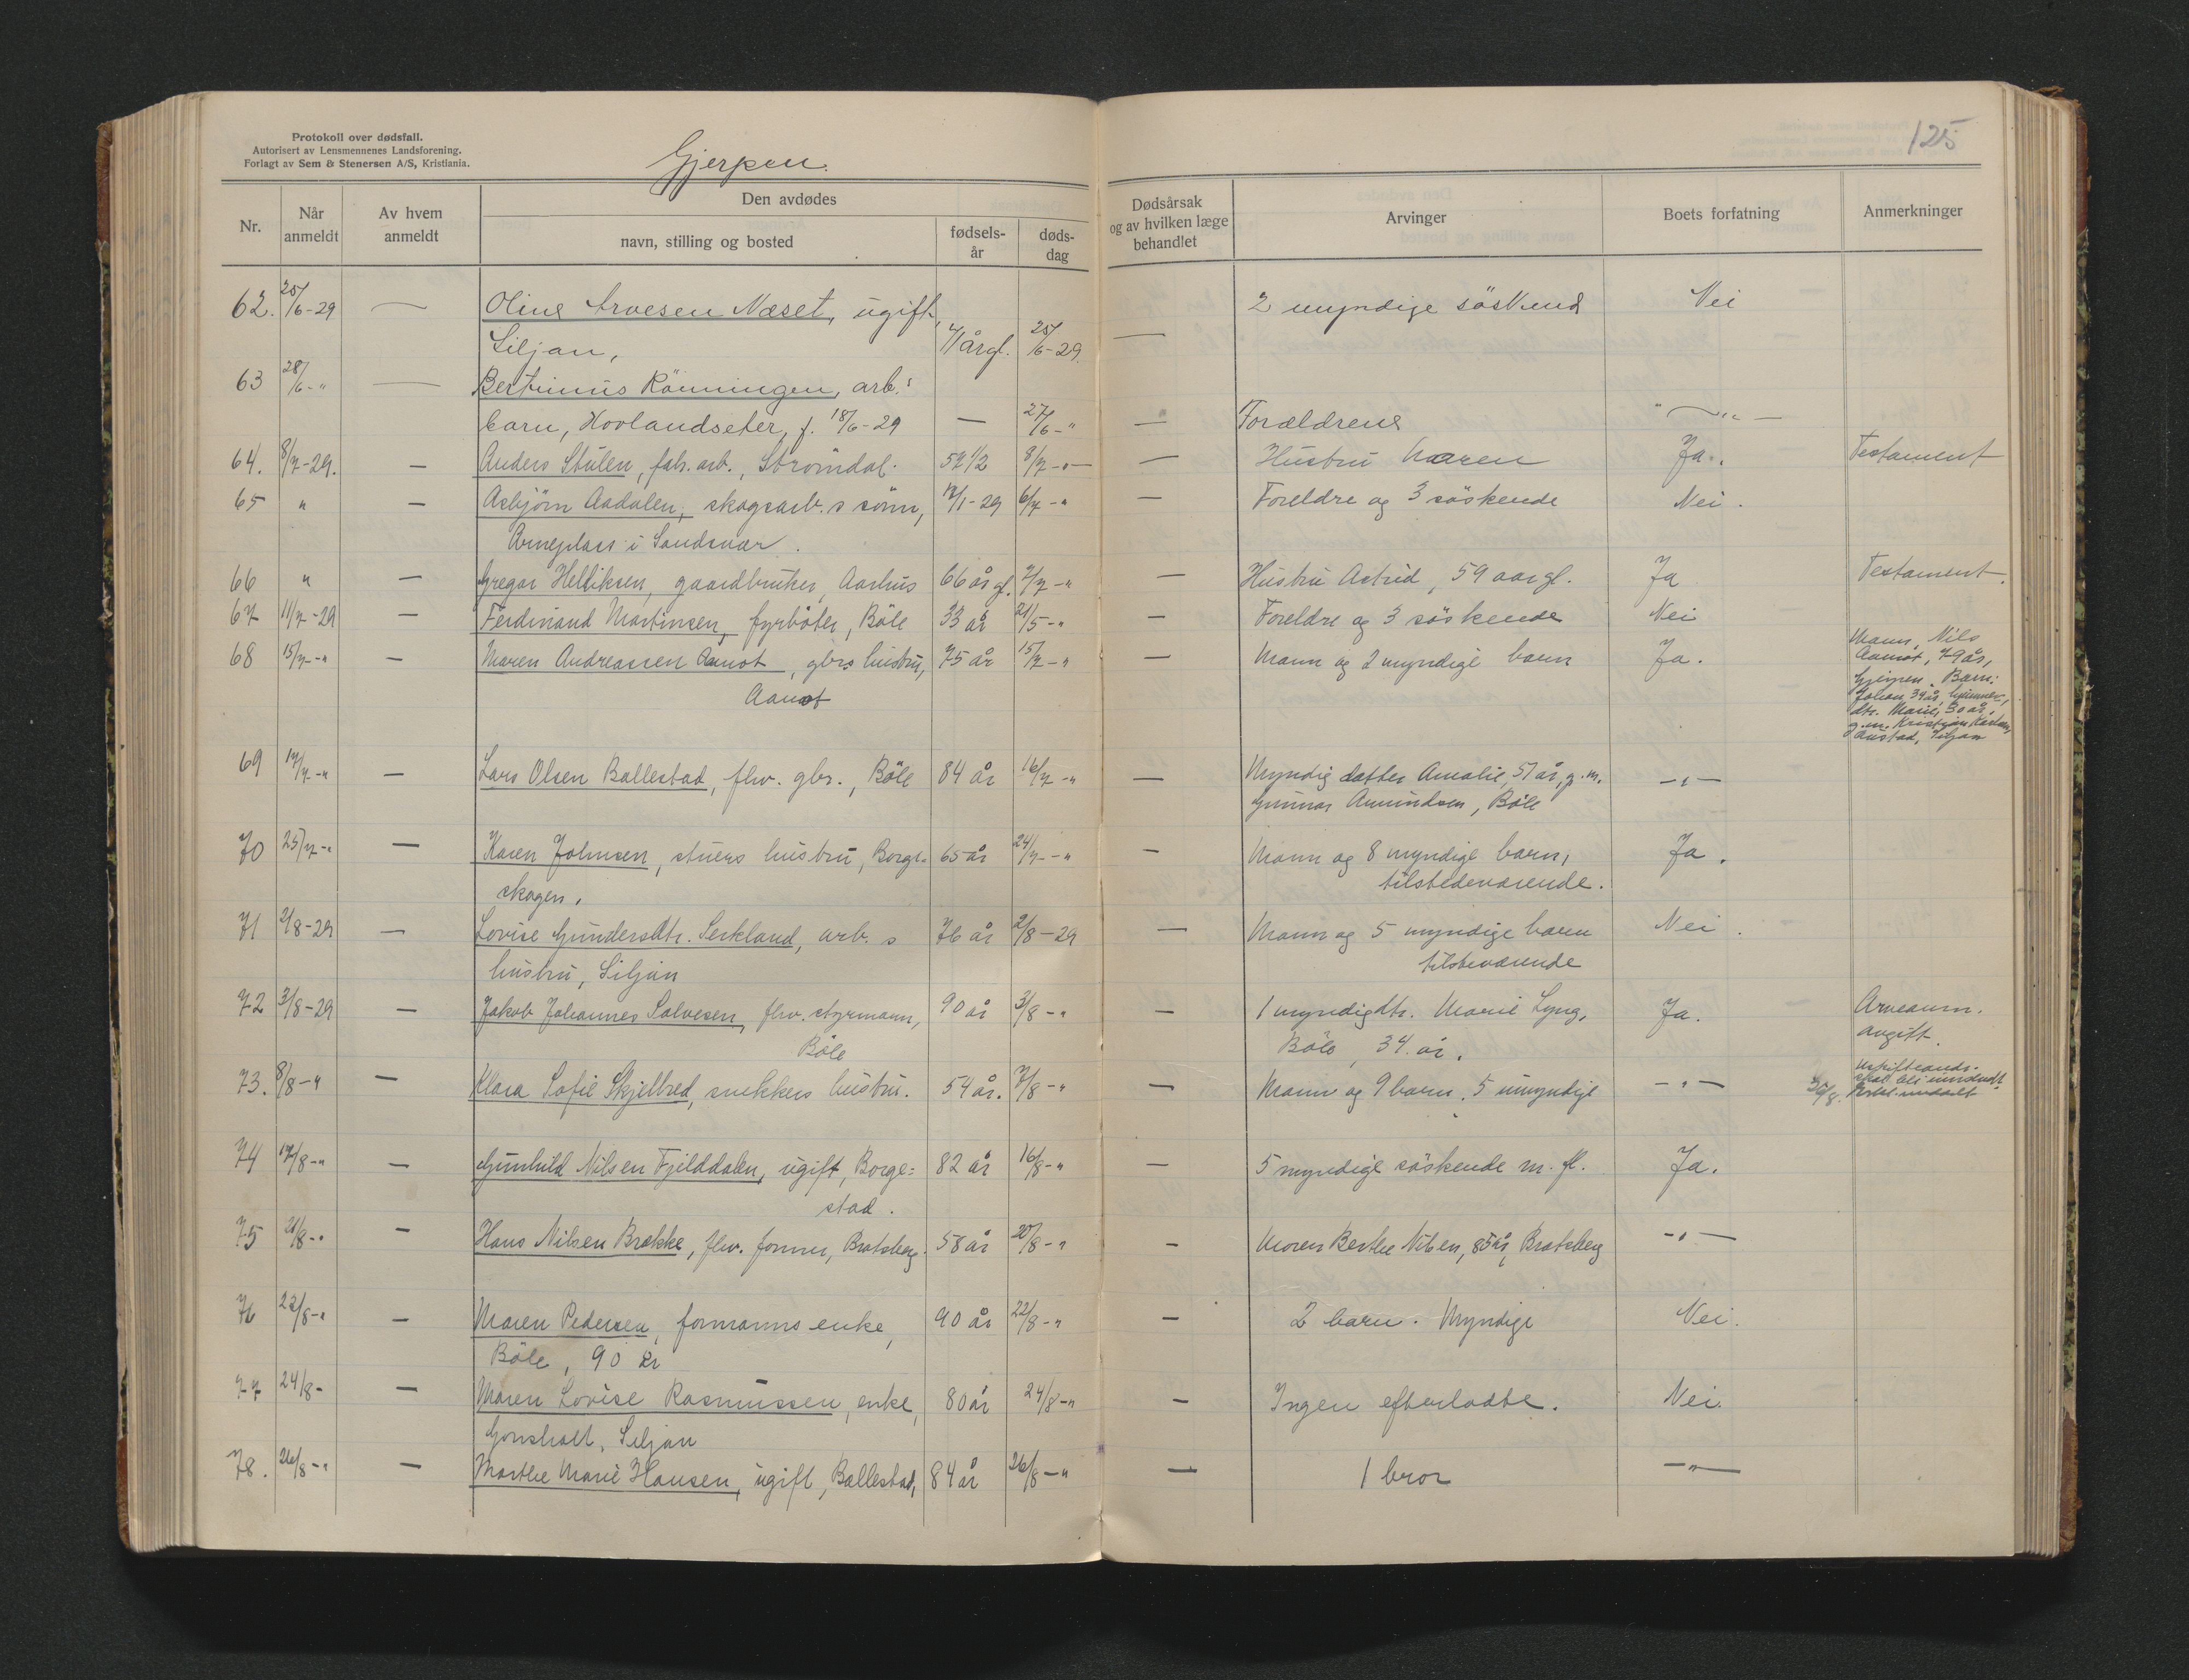 Protokoll over dødsfall.
Autorisert av Lensmennenes Landsforening.
Forlagt av Sem & Stenersen A/S, Kristiania.
Gjerpen.
125
Nr.
Når anmeldt
Av hvem anmeldt
Den avdødes
navn, stilling og bosted
fødsels-år
døds-dag
Dødsårsak og av hvilken læge behandlet
Arvinger
Boets forfatning
Anmerkninger
62. 25/6-29 — Oline Arvesen Næset, ugift, 2 myndige söskend Nei
Siljan, 71 år gl. 25/6-29. —
63 28/6-" — Bertinius Rönningen, arb.s
barn, Hovlandseter, f. 18/6-29 — 27/6-" — Forældrene — " —
64. 8/7-29. — Anders Stulen, fab. arb., Strömdal. 52 1/2 8/7-"— — Hustru Maren Ja. Testament
65 " — Asbjörn Aadalen, skogsarb. s sönn, 17/1-29 6/7-" — Foreldre og 3 söskende Nei.
Arneplass i Sandsvær.
66 " — Gregar Helliksen, gaardbruker, Aarhus 66 år gl. 7/7-" — Hustru Astrid, 59 aar gl. Ja Testament.
67 11/7-29 — Ferdinand Martinsen, fyrböter, Böle 33 år 21/5-" — Foreldre og 3 söskende Nei
68 15/7-" — Maren Andreassen Aamot, gbrs hustru, 75 år 15/7-" — Mann og 2 myndige barn Ja. Mann, Nils
Aamot
Aamot, 79 år,
Gjerpen. Barn:
Johan 34 år,
dtr. Marie, 30 år,
g.m. Kristjan
Austad, Siljan
69 17/7-" — Lars Olsen Ballestad, fhv. gbr., Böle 84 år 16/7-" — Myndig datter Amalie, 57 år, g.m. —"—
Gunnar Amundsen, Böle
70 25/7-" — Karen Johnsen, stuers hustru, Borge- 65 år 24/7-" — Mann og 8 myndige barn, Ja.
skogen. tilstedeværende.
71 2/8-29 — Lovise Gundersdtr. Serkland, arb. s 76 år 2/8-29 — Mann og 5 myndige barn Nei.
hustru, Siljan tilsteværende
72 3/8-29 — Jakob Johannes Salvesen, fhv. styrmann, 90 år 3/8-" — 1 myndig dtr. Marie Lyng, Ja. Arveanm.
Böle Böle, 34 år. avgift.
73. 8/8-" — Klara Sofie Skjelbred, snekkers hustru. 54 år. 7/8-" — Mann og 9 barn. 5 umyndige —"—
skal bli
74 17/8-" — Gunhild Nilsen Fjelddalen, ugift, Borge= 82 år 16/8-" — 5 myndige söskende m. fl. Ja.
stad.
75 21/8-" — Hans Nilsen Brekke, fhv. formn, Bratsberg 58 år 20/8-" — Moren Berthe Nilsen, 85 år, Bratsberg —"—
76 22/8-" — Maren Pedersen, formanns enke, 90 år 22/8-" — 2 barn. Myndige Nei.
Böle, 90 år
77 24/8- — Maren Lovise Rasmussen, enke, 80 år 24/8-" — Ingen efterladte. Nei.
Gonsholt, Siljan
78. 26/8-" — Marthe Marie Hansen, ugift, Ballestad, 84 år 26/8-" — 1 bror —"—